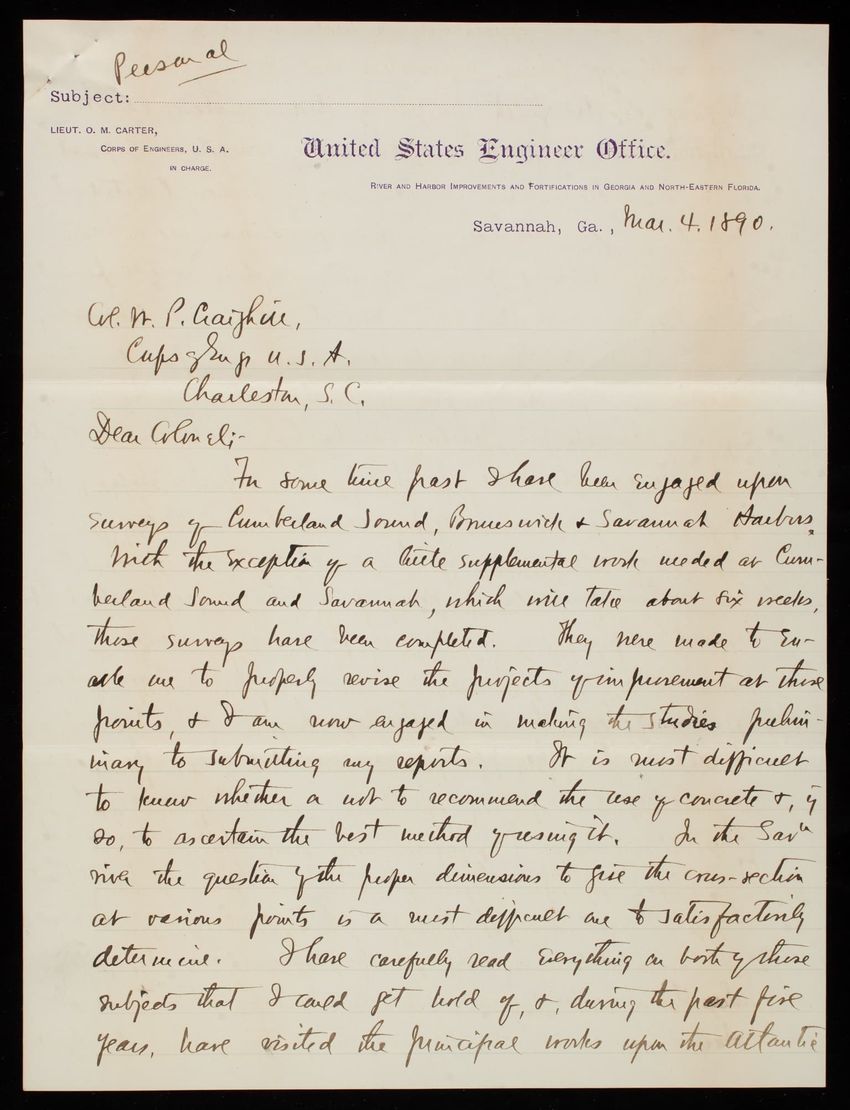 Personal
Subject:
LIEUT. O. M. CARTER,
CORPS OF ENGINEERS, U. S. A.
IN CHARGE.
United States Engineer Office.
RIVER AND HARBOR IMPROVEMENTS AND FORTIFICATIONS IN GEORGIA AND NORTH-EASTERN FLORIDA.
Savannah, Ga., Mar. 4. 1890.
Col. W. P. Craighill,
Corps of Engrs U. S. A.
Charleston, S. C.
Dear Colonel;-
For some time past I have been engaged upon
surveys of Cumberland Sound, Brunswick & Savannah Harbors.
With the exception of a little supplemental work needed at Cum-
berland Sound and Savannah, which will take about six weeks,
those surveys have been completed. They were made to en-
able me to properly revise the projects of improvement at those
points, & I am now engaged in making the studies prelim-
inary to submitting my reports. It is most difficult
to know whether or not to recommend the use of concrete &, if
so, to ascertain the best method of using it. In the Savh
river the question of the proper dimensions to give the cross-section
at various points is a most difficult one to satisfactorily
determine. I have carefully read everything on both of those
subjects that I could get hold of, &, during the past five
years, have visited the principal works upon the Atlantic